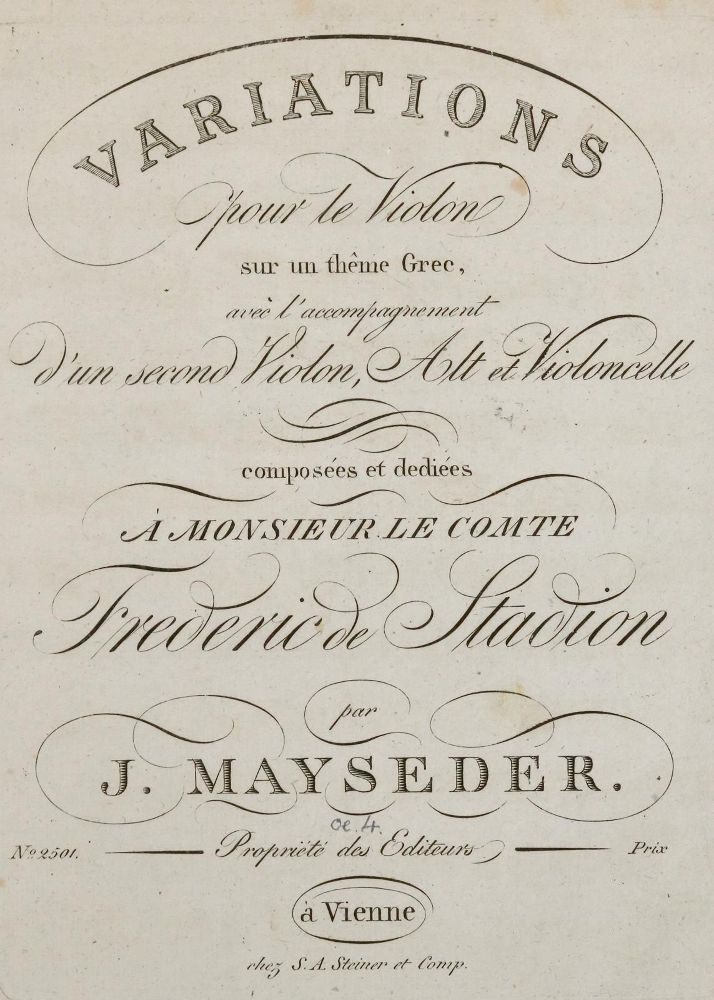 VARIATIONS
pour le Violon
sur un thême Grec,
avèc l'accompagnement
d'un second Violon, Alt et Violoncelle
composées et dediées
À MONSIEUR LE COMTE
Frederic de Stadion
par
J. MAYSEDER.
oe. 4.
No. 2501. Propriété des Editeurs Prix
à Vienne
chez S. A. Steiner et Comp.